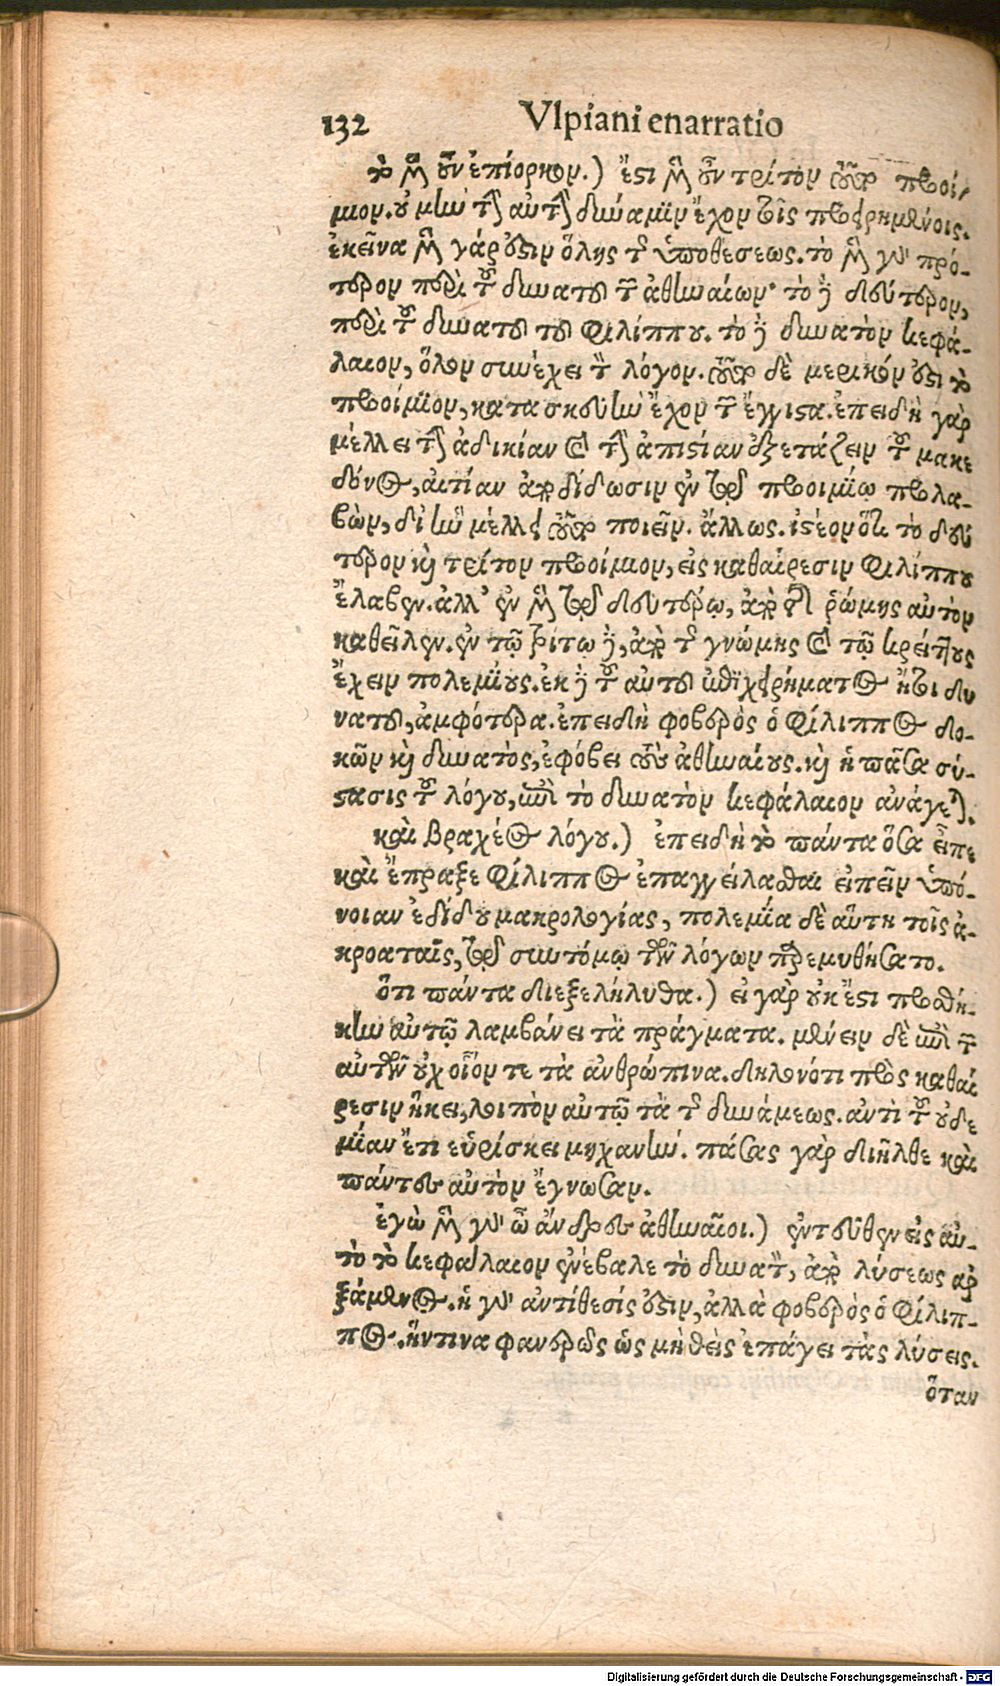 132 Vlpiani enarratio
τὸ μὲν οὖν ἐπίορκον.) ἔστι μὲν οὖν τρίτον τοῦτο προοί-
μιον. οὐ μὴν τὴν αὐτὴν δύναμιν ἔχον τοῖς προειρημένοις.
ἐκεῖνα μὲν γάρ ἐστιν ὅλης τῆς ὑποθέσεως. τὸ μὲν γὰρ πρό-
τερον περὶ τοῦ δυνατοῦ τῶν ἀθηναίων· τὸ δὲ δεύτερον,
περὶ τοῦ δυνατοῦ τοῦ Φιλίππου. τὸ δὲ δυνατὸν κεφά-
λαιον, ὅλον συνέχει τὸν λόγον. τοῦτο δὲ μερικόν ἐστι τὸ
προοίμιον, κατασκευὴν ἔχον τὴν ἔγγιστα. ἐπειδὴ γὰρ
μέλλει τὴν ἀδικίαν καὶ τὴν ἀπιστίαν ἐξετάζειν τοῦ μακε
δόνος, αἰτίαν ἀποδίδωσιν ἐν τῷ προοιμίῳ προλα-
βὼν, δι' ἣν μέλλει τοῦτο ποιεῖν. ἄλλως. ἰστέον ὅτι τὸ δεύ
τερον καὶ τρίτον προοίμιον, εἰς καθαίρεσιν Φιλίππου
ἔλαβεν. ἀλλ' ἐν μὲν τῷ δευτέρῳ, ἀπὸ τῆς ῥώμης αὐτὸν
καθεῖλεν. ἐν τῷ τρίτῳ δὲ, ἀπὸ τῆς γνώμης καὶ τῷ κρείττους
ἔχειν πολεμίους. ἐκ δὲ τοῦ αὐτοῦ ἐπιχειρήματος ἤτοι δυ
νατοῦ, ἀμφότερα. ἐπειδὴ φοβερὸς ὁ Φίλιππος δο-
κῶν καὶ δυνατὸς, ἐφόβει τοὺς ἀθηναίους. καὶ ἡ πᾶσα σύ-
στασις τοῦ λόγου, ἐπὶ τὸ δυνατὸν κεφάλαιον ἀνάγεται.
καὶ βραχέος λόγου.) ἐπειδὴ τὸ πάντα ὅσα εἶπε
καὶ ἔπραξε Φίλιππος ἐπαγγείλασθαι εἰπεῖν ὑπό-
νοιαν ἐδίδου μακρολογίας, πολεμία δὲ αὕτη τοῖς ἀ-
κροαταῖς, τῷ συντόμῳ τῶν λόγων παρεμυθήσατο.
ὅτι πάντα διεξελήλυθα.) εἰ γὰρ οὐκ ἔστι προσθή-
κην αὐτῷ λαμβάνει τὰ πράγματα. μένειν δὲ ἐπὶ τῶν
αὐτῶν οὐχ οἷόν τε τὰ ἀνθρώπινα. δηλονότι πρὸς καθαί
ρεσιν ἥκει, λοιπὸν αὐτῷ τὰ τῆς δυνάμεως. ἀντὶ τοῦ οὐδε
μίαν ἔτι εὑρίσκει μηχανήν. πάσας γὰρ διῆλθε καὶ
πάντες αὐτὸν ἔγνωσαν.
ἐγὼ μὲν γὰρ ὦ ἄνδρες ἀθηναῖοι.) ἐντεῦθεν εἰς αὐ-
τὸ τὸ κεφάλαιον ἐνέβαλε τὸ δυνατὸν, ἀπὸ λύσεως ἀρ
ξάμενος. ἡ γὰρ ἀντίθεσίς ἐστιν, ἀλλὰ φοβερὸς ὁ Φίλιπ-
πος. ἥντινα φανερῶς ὡς μὴ θεὶς ἐπάγει τὰς λύσεις.
ὅταν
Digitalisierung gefördert durch die Deutsche Forschungsgemeinschaft - DFG